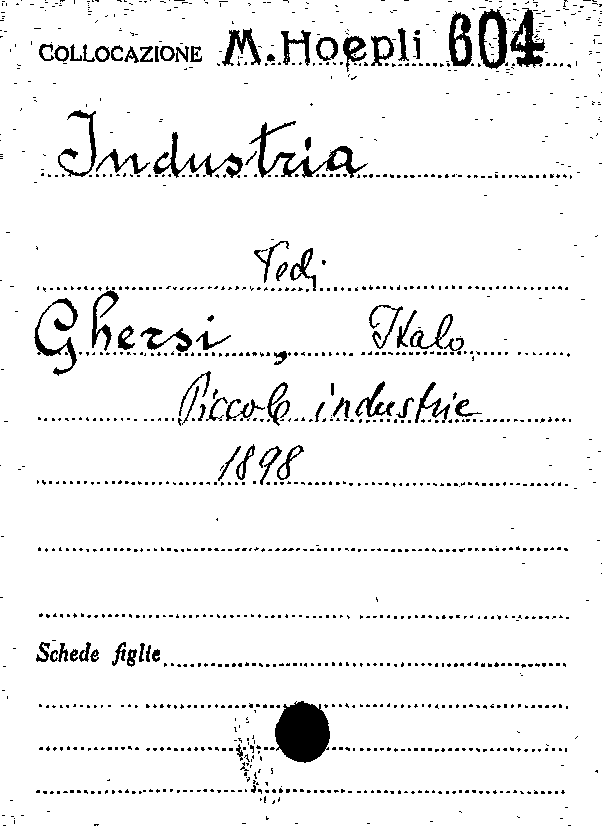 COLLOCAZIONE M.Hoepli 604
Industria
Vedi
Ghersi, Italo
Piccole industrie
1898
Schede figlie